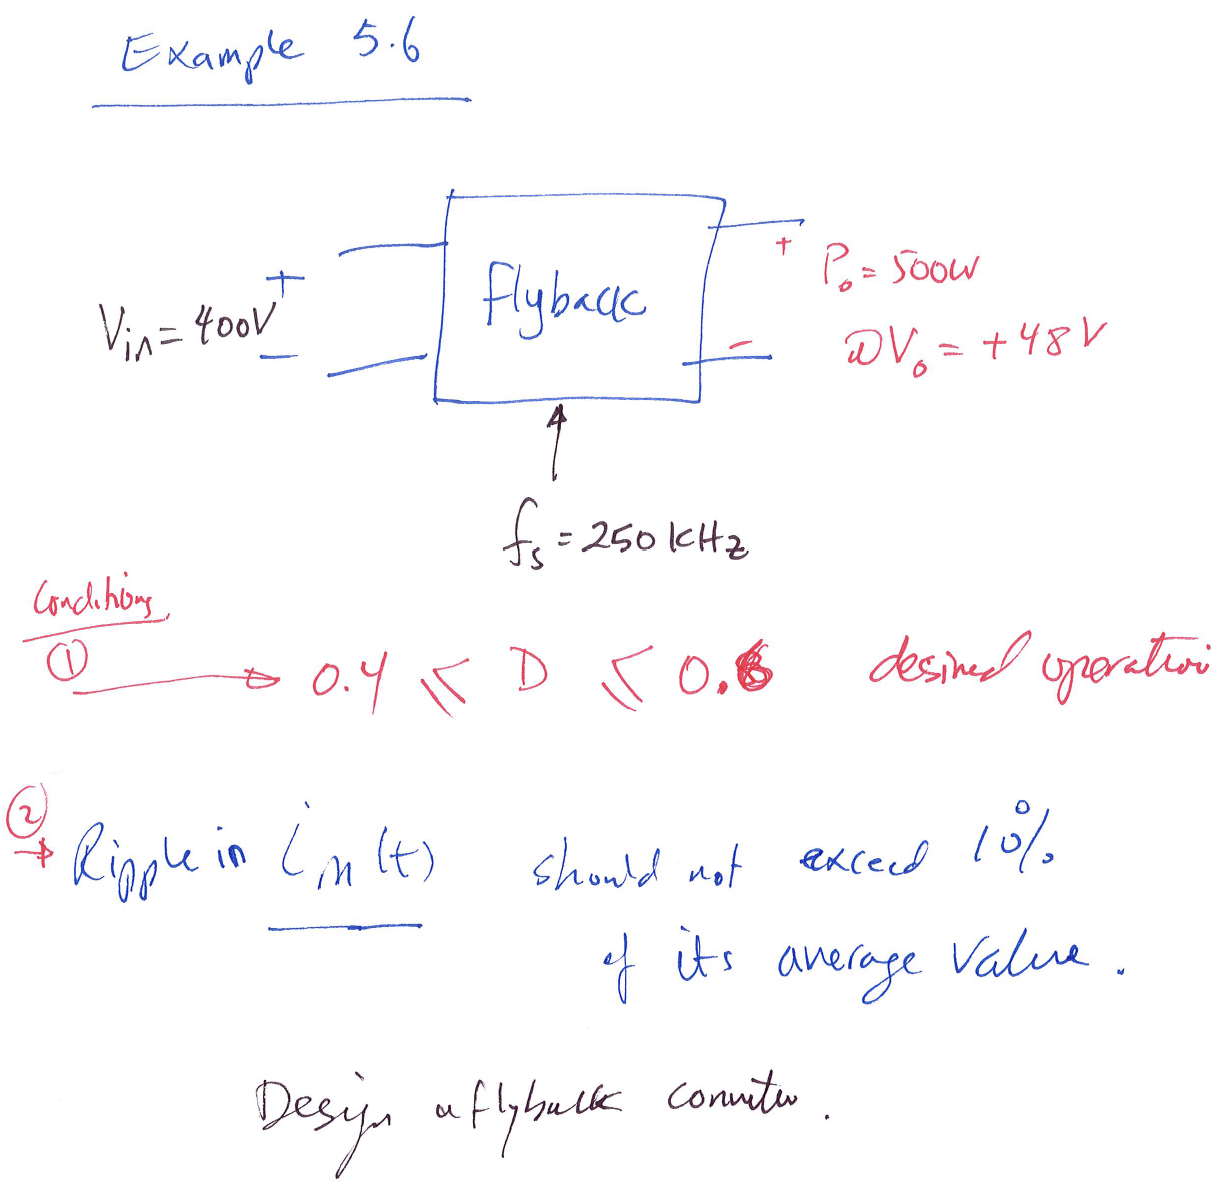 Example 5.6
+
Vin = 400V
−
Flyback
+
Po = 500W
Vo = +48V
−
fs = 250 kHz
Conditions
① → 0.4 ≤ D ≤ 0.6 desired operation
②
→ Ripple in im(t) should not exceed 10%
of its average value.
Design a flyback converter.